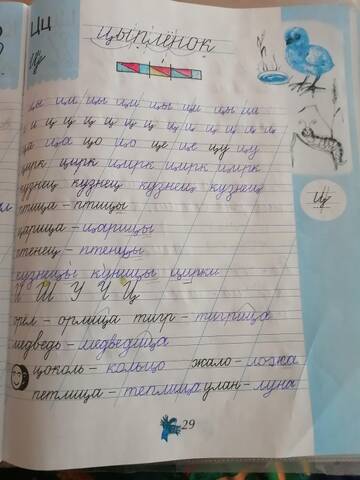 Цц
цыплёнок
Ц
ци им цы цм цы им цы ца
и и ц ц ц ц ц ц ц ц ц ц ц ц
ца ца цо цо це це цу цу
цирк цирк цирк цирк цирк
кузнец кузнец кузнец кузнец
птица – птицы
Ц
царица – царицы
птенец – птенцы
кузницы куницы цирки
И Ш У Ч Ц
орел – орлица тигр – тигрица
медведь – медведица
цоколь – кольцо жало – ложа
петлица – теплица улан – луна
29